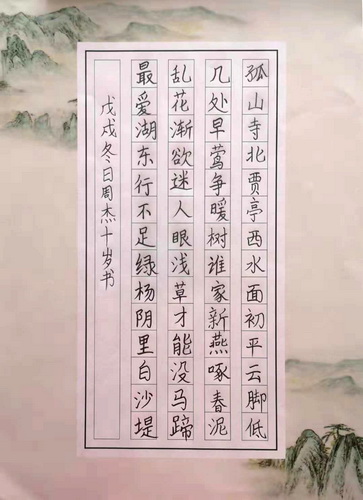 孤山寺北贾亭西水面初平云脚低
几处早莺争暖树谁家新燕啄春泥
乱花渐欲迷人眼浅草才能没马蹄
最爱湖东行不足绿杨阴里白沙堤
戊戌冬日周杰十岁书